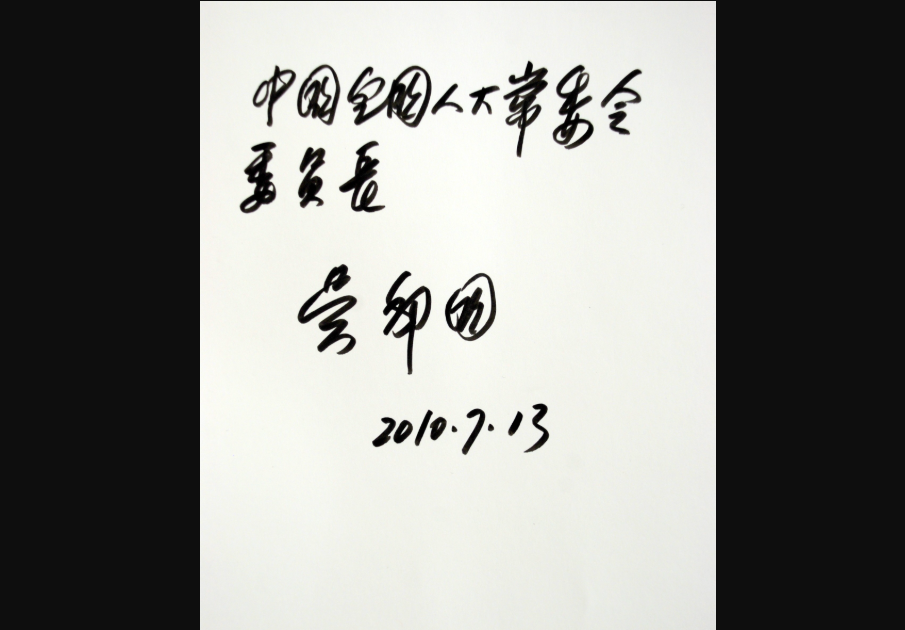 中国全国人大常委会
委员長
吴邦国
2010.7.13